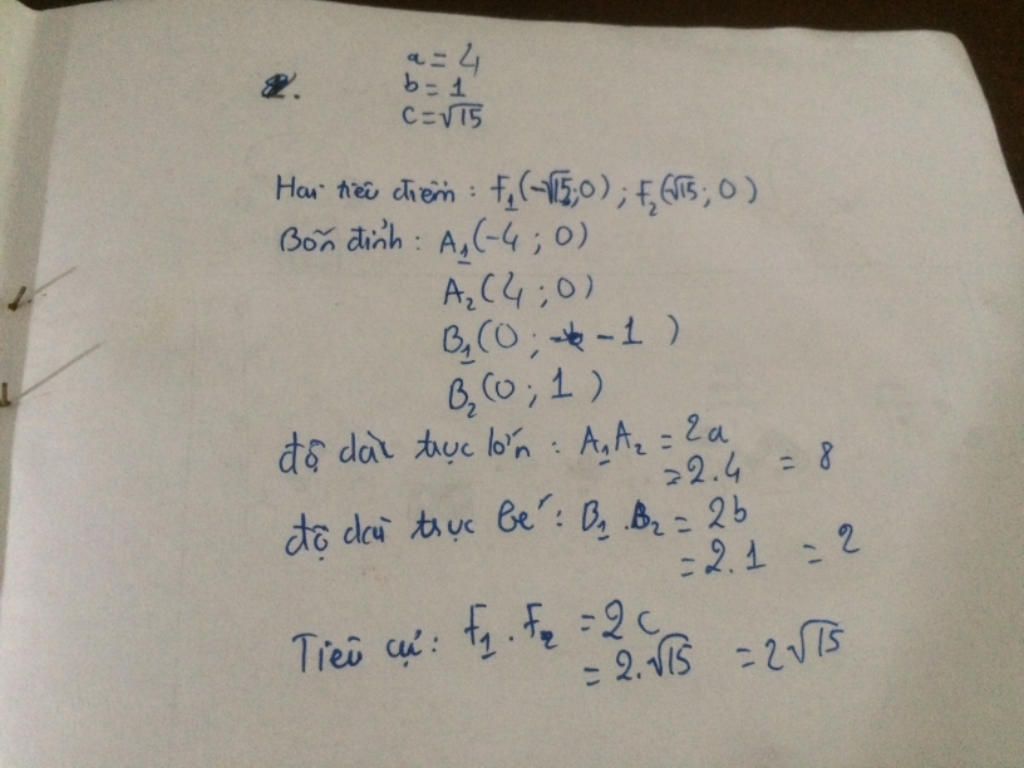 2.
a = 4
b = 1
c = √15
Hai tiêu điểm : F₁(-√15;0) ; F₂(√15; 0)
Bốn đỉnh : A₁(-4 ; 0)
A₂(4 ; 0)
B₁(0 ; -1 )
B₂(0 ; 1 )
độ dài trục lớn : A₁A₂ = 2a
= 2.4 = 8
độ dài trục bé : B₁.B₂ = 2b
= 2.1 = 2
Tiêu cự : F₁.F₂ = 2c
= 2.√15 = 2√15